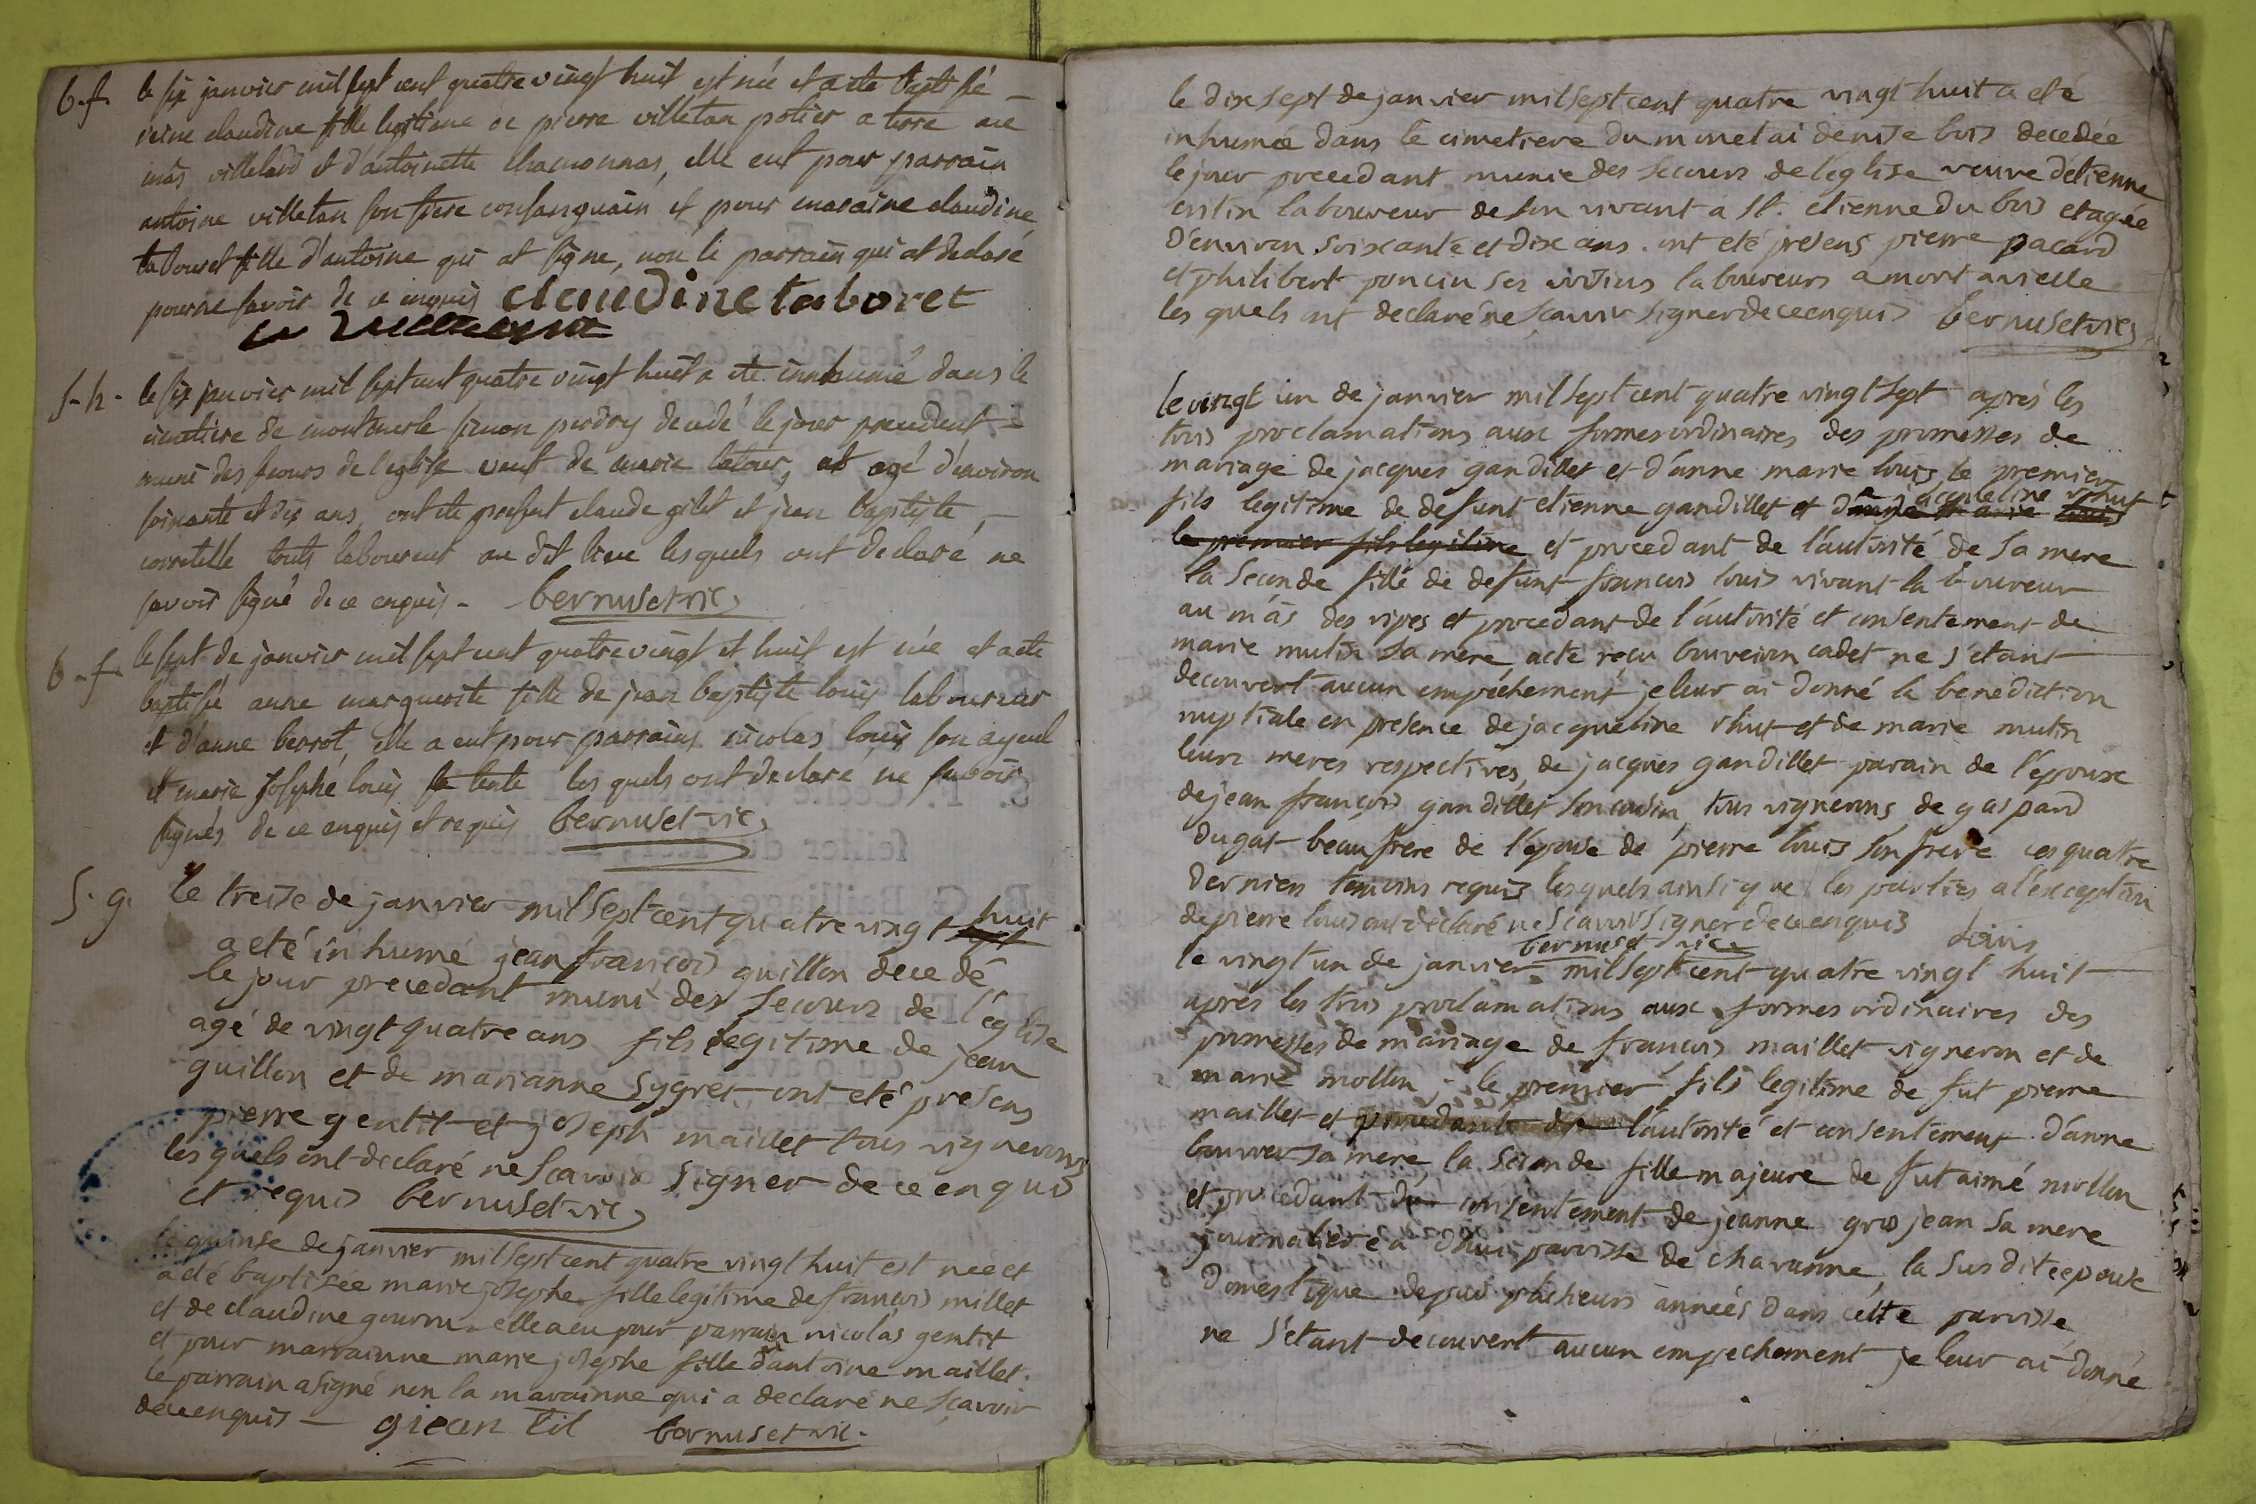 b.f. le six janvier mil sept cent quatre vingt huit est née et a été baptisé
reine claudine fille legitime de pierre villetan potier a terre au
mâs villetard et d'antoinette chamonnas, elle eut pour parrain
antoine villetan son frere consanguain, et pour maraine claudine
tabouret fille d'antoine qui at signe, non le parrain qui at declaré
pour ne savoir de ce enquis claudine taboret
S-h- le six janvier mil sept cent quatre vingt huit a été innhumé dans le
cimetiere de montmerle simon perdry decedé le jour precedent
muni des secours de l'eglise veuf de marie latour, at agé d'environ
soixante et dix ans, ont été present claude gilet et jean baptiste
corretelle touts laboureur au dit lieu lesquels ont declaré ne
savoir signé de ce enquis - bernuset vic
b-f. le sept de janvier mil sept cent quatre vingt et huit est née et a été
baptisé anne marguerite fille de jean baptiste louis laboureur
et d'anne berrot, elle a eut pour parrains nicolas louis son ayeul
et marie josephé louis sa tente les quels ont declaré ne savoir
signés de ce enquis et requis bernuset vic
S.g. le treise de janvier mil sept cent quatre vingt huit
a eté inhumé jean francois guillon decedé
le jour precedant muni des secours de l'église
agé de vingt quatre ans fils legitime de jean
guillon et de marianne sygret ont eté presens
pierre gentil et joseph maillet tous vignerons
lesquels ont declaré ne scavoir signer de ce enquis
et requis bernuset vic
le quinse de janvier mil sept cent quatre vingt huit est née et
a eté baptisée marie josephe fille legitime de francois millet
et de claudine gourru. elle a eu pour parrain nicolas gentit
et pour marrainne marie josephe fille d'antoine maillet.
le parrain a signé non la marainne qui a declaré ne sçavoir
de ce enquis - gjean til bernuset vic.
le dix sept de janvier mil sept cent quatre vingt huit a eté
inhumée dans le cimetiere du monet ai denise bois decedée
le jour precedant munie des secours de l'église veuve d'etienne
laboureur de son vivant a st. etienne du bois et agée
d'environ soixante et dix ans. ont eté presens pierre pacard
et philibert poncin ses voisins laboureurs a mont avielle
les quels ont declaré ne sçavoir signer de ce enquis bernuset vic
le vingt un de janvier mil sept cent quatre vingt sept aprés les
trois proclamations aux formes ordinaires des promesses de
mariage de jacques gandillet et d'anne marie louis, le premier
fils legitime de defunt etienne gandillet et de jacqueline rhut
le premier fils legitime et procedant de l'autorité de sa mere
la seconde fille de defunt francois louis vivant laboureur
au mâs des vipes et procedant de l'autorité et consentement de
marie mutin sa mere acte recu bouveiron cadet ne s'etant
decouvert aucun empéchement je leur ai donné la benediction
nuptiale en presence de jacqueline rhut et de marie mutin
leurs meres respectives, de jacques gandillet parain de l'epoux
de jean françois gandillet son cousin tous vignerons de gaspard
dugat beaufrere de l'epouse de pierre louis son frere ces quatre
derniers temoins requis lesquels ainsi que les parties a l'exception
de pierre louis ont déclaré ne scavoir signer de ce enquis louis
bernuset vic
le vingt un de janvier mil sept cent quatre vingt huit
après les trois proclamations aux formes ordinaires des
promesses de mariage de francois maillet vigneron et de
marie mollon; le premier fils legitime de fut pierre
maillet et procedant de l'autorité et consentement d'anne
bouvier sa mere la seconde fille majeure de fut aimé mollon
et procedant du consentement de jeanne gros jean sa mere
journaliere a paroisse de chavanne, la susdite epouse
domestique depuis plusieurs années dans cette paroisse
ne s'étant decouvert aucun empechement je leur ai donné